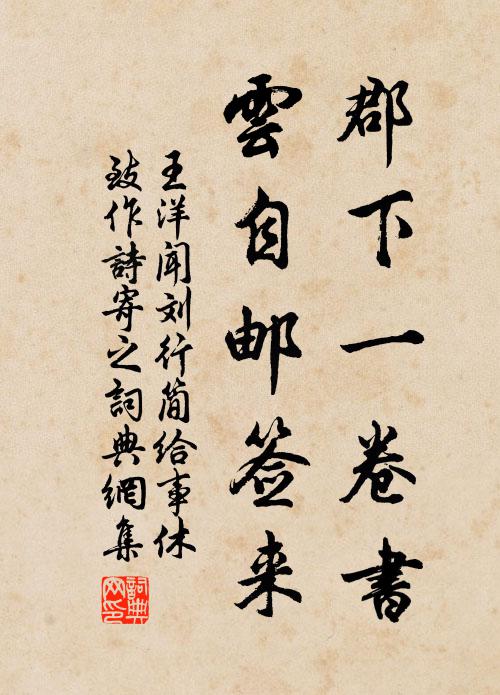 郡下一卷書
雲自邮签来
王洋闻刘行简给事休
致作詩寄之詞典網集
詞典网印